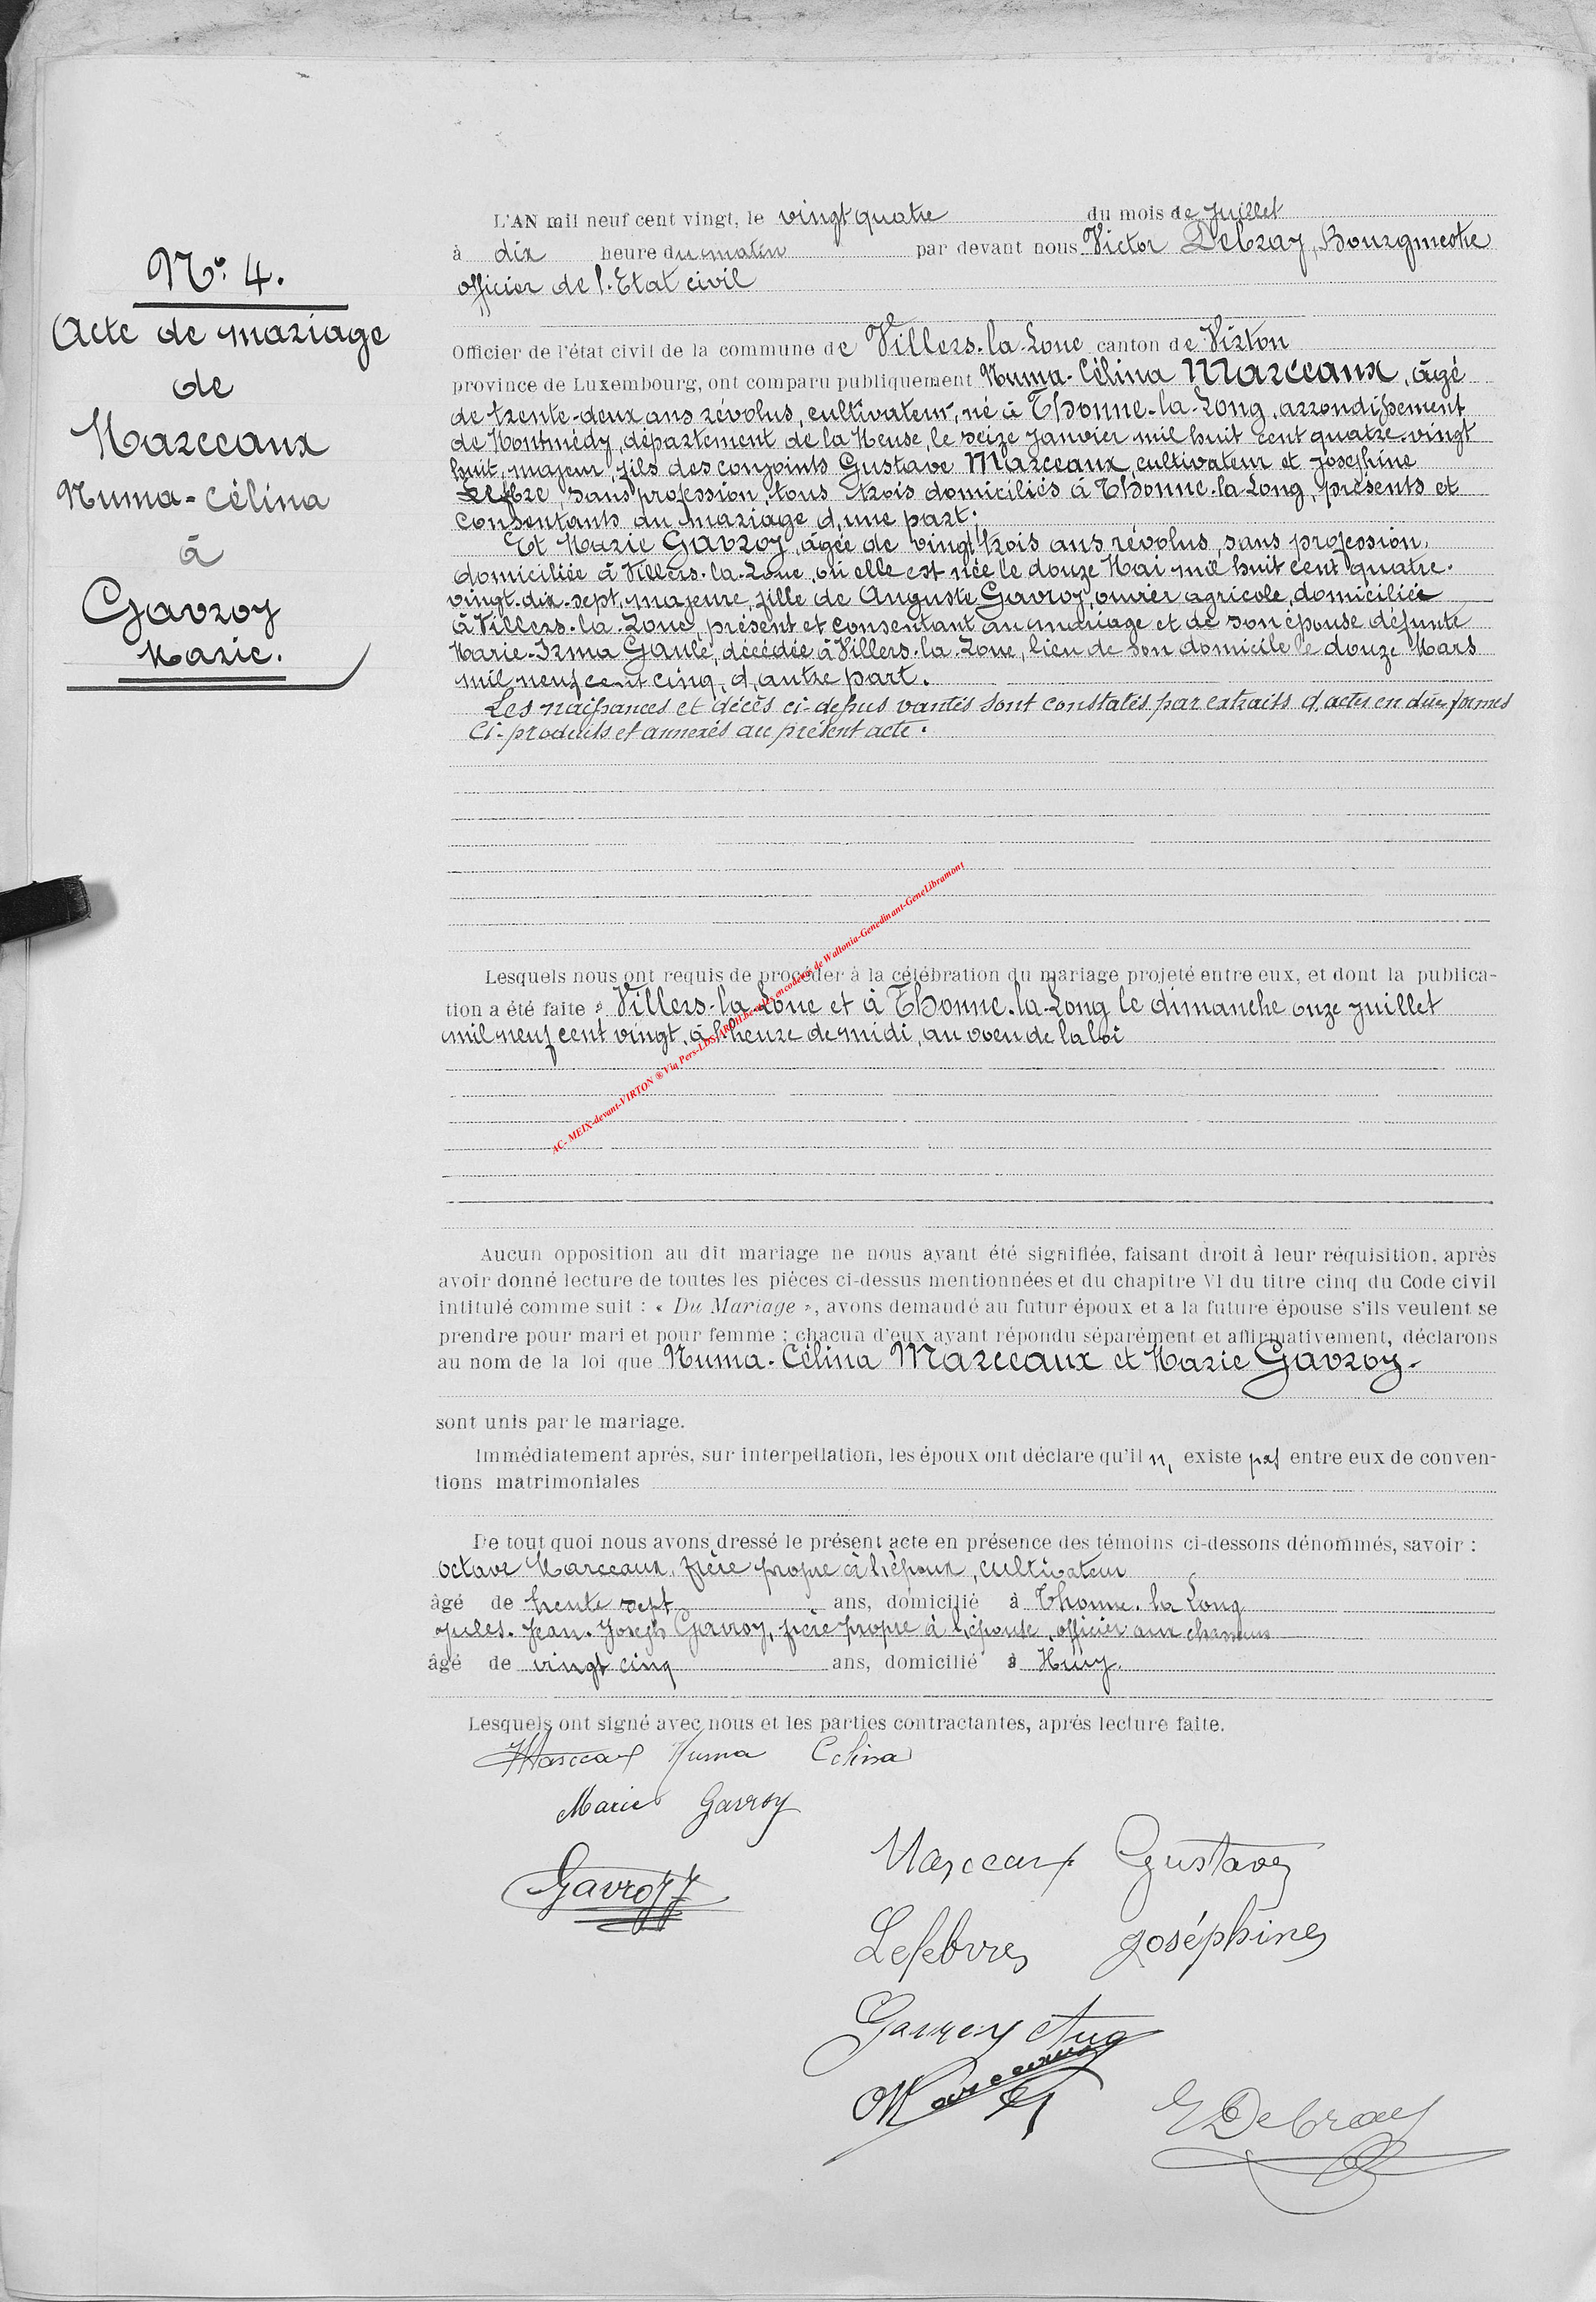 N° 4.
Acte de mariage
de
Marceaux
Numa-Célina
à
Gavroy
Marie.
L'AN mil neuf cent vingt, le vingt quatre du mois de Juillet
à dix heure du matin par devant nous Victor Debray, Bourgmestre
officier de l'Etat civil
Officier de l'état civil de la commune de Villers-la-Loue canton de Virton
province de Luxembourg, ont comparu publiquement Numa-Célina Marceaux, âgé
de trente-deux ans révolus, cultivateur, né à Thonne-la-Long, arrondissement
de Montmédy, département de la Meuse, le seize Janvier mil huit cent quatre-vingt
huit, majeur, fils des conjoints Gustave Marceaux, cultivateur et Joséphine
sans profession, tous trois domiciliés à Thonne-la-Long, présents et
consentants au mariage d'une part;
Et Marie Gavroy, âgée de vingt trois ans révolus, sans profession,
domiciliée à Villers-la-Loue, où elle est née le douze Mai mil huit cent quatre-
vingt-dix-sept, majeure, fille de Auguste Gavroy, ouvrier agricole, domiciliée
à Villers-la-Loue, présent et consentant au mariage et de son épouse défunte
Marie-Irma Gaule, décédée à Villers-la-Loue, lieu de son domicile le douze Mars
mil neuf cent cinq, d'autre part.
Les naissances et décès ci-dessus vantés sont constatés par extraits d'actes en dûes formes
Ci-produits et annexés au présent acte.
Lesquels nous ont requis de procéder à la célébration du mariage projeté entre eux, et dont la publica-
tion a été faite à Villers-la-Loue et à Thonne-la-Long le dimanche onze Juillet
mil neuf cent vingt, à l'heure de midi, au voeu de la loi
AC-MEIX-devant-VIRTON ® Via Pers-LDS-AROH.be et les encodeurs de Wallonia-Genedinant-GeneLibramont
Aucun opposition au dit mariage ne nous ayant été signifiée, faisant droit à leur réquisition, après
avoir donné lecture de toutes les pièces ci-dessus mentionnées et du chapitre VI du titre cinq du Code civil
intitulé comme suit : « Du Mariage », avons demandé au futur époux et à la future épouse s'ils veulent se
prendre pour mari et pour femme ; chacun d'eux ayant répondu séparément et affirmativement, déclarons
au nom de la loi que Numa-Célina Marceaux et Marie Gavroy-
sont unis par le mariage.
Immédiatement après, sur interpellation, les époux ont déclare qu'il n' existe pas entre eux de conven-
tions matrimoniales
De tout quoi nous avons dressé le présent acte en présence des témoins ci-dessons dénommés, savoir :
Octave Marceaux, frère propre à l'époux, cultivateur
âgé de trente sept ans, domicilié à Thonne-la Long
Jules-Jean-Joseph Gavroy, frère propre à l'épouse, officier aux chasseurs
âgé de vingt cinq ans, domicilié à Huy.
Lesquels ont signé avec nous et les parties contractantes, après lecture faite.
Marceaux Numa Célina
Marie Gavroy
Marceaux Gustave
Gavroy J
Lefebvre Joséphine
Gavroy Aug
Marceaux
Debray